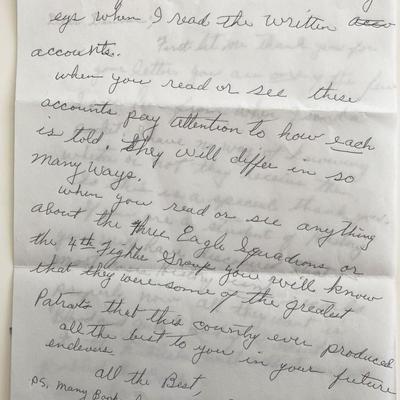 eys when I read the written
accounts.
when you read or see these
accounts pay attention to how each
is told. They will differ in so
many ways.
when you read or see anything
about the three Eagle Squadrons or
the 4th Fighter Group you will know
that they were some of the greatest
Patriots that this country ever produced
all the best to you in your future
endevers.
all the Best,
PS. Many Book